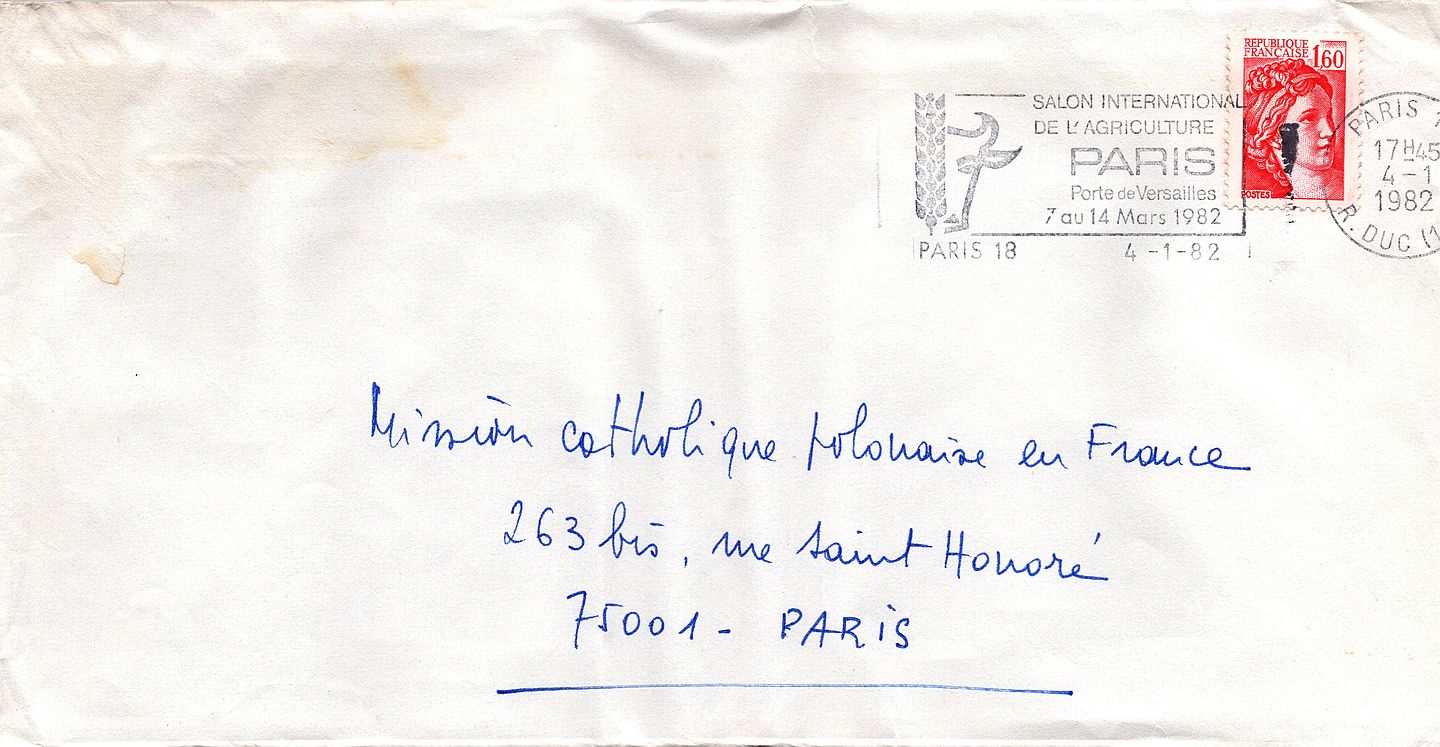 REPUBLIQUE
FRANÇAISE 1,60
POSTES
SALON INTERNATIONAL
DE L'AGRICULTURE
PARIS
Porte de Versailles
7 au 14 Mars 1982
PARIS 18 4-1-82
PARIS 1
17H45
4-1
1982
R. DUC (1
Mission catholique polonaise en France
263 bis, rue Saint Honoré
75001 - PARIS